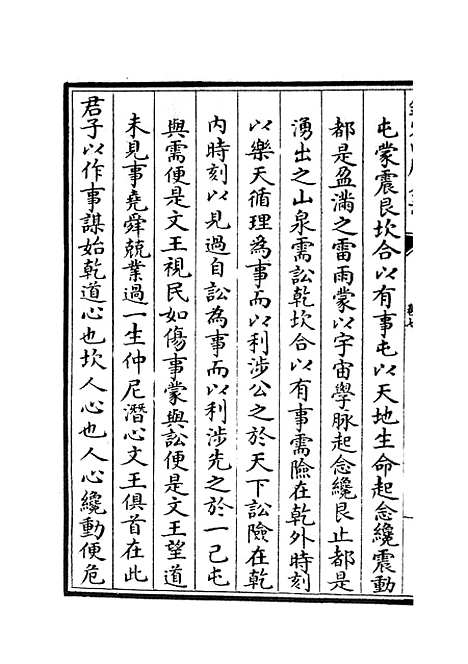 屯蒙震艮坎合以有事屯以天地生命起念纔震動
都是盈滿之雷雨蒙以宇宙學脉起念纔艮止都是
湧出之山泉需訟乾坎合以有事需險在乾外時刻
以樂天循理為事而以利涉公之於天下訟險在乾
内時刻以見過自訟為事而以利涉先之於一己屯
與需便是文王視民如傷事蒙與訟便是文王望道
未見事堯舜兢業過一生仲尼潛心文王俱首在此
君子以作事謀始乾道心也坎人心也人心纔動便危